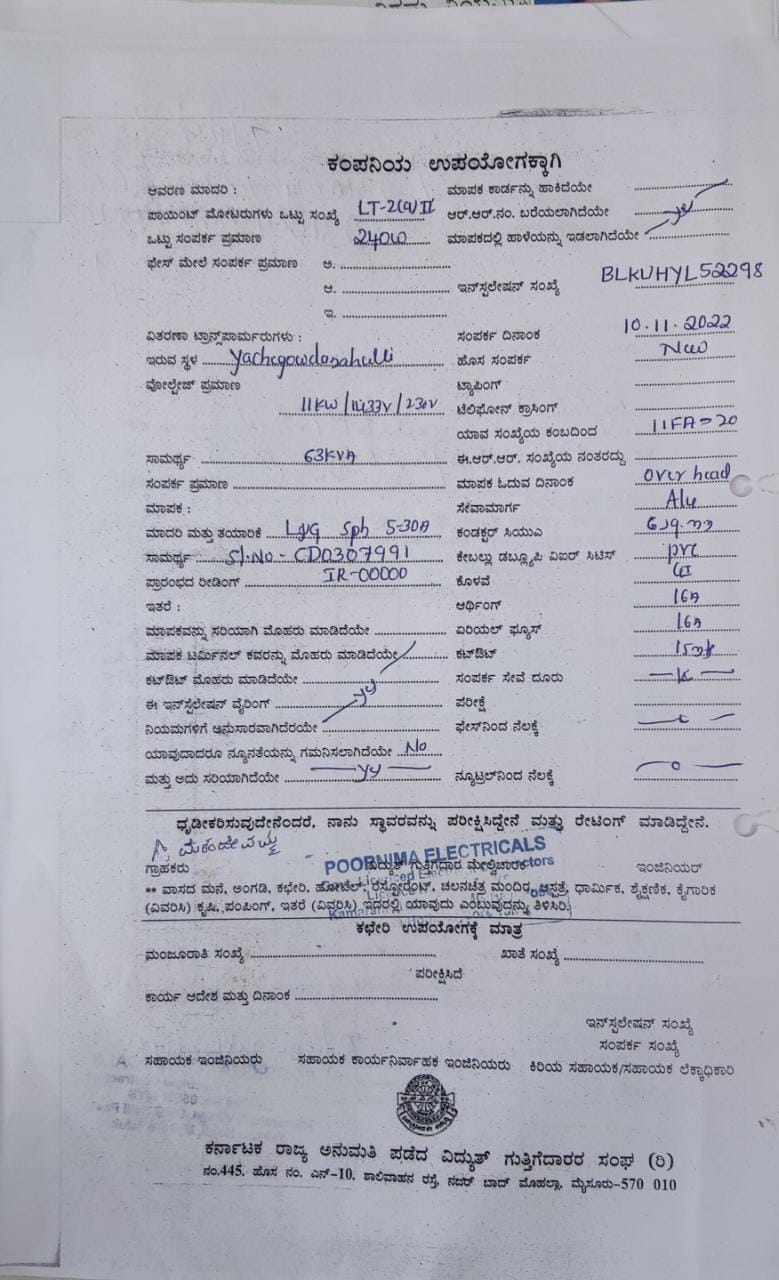 ಕಂಪನಿಯ ಉಪಯೋಗಕ್ಕಾಗಿ
ಆವರಣ ಮಾದರಿ : ಮಾಪಕ ಕಾರ್ಡನ್ನು ಹಾಕಿದೆಯೇ
ಪಾಯಿಂಟ್ ಮೋಟರುಗಳು ಒಟ್ಟು ಸಂಖ್ಯೆ LT-2(a)II ಆರ್.ಆರ್.ನಂ. ಬರೆಯಲಾಗಿದೆಯೇ
ಒಟ್ಟು ಸಂಪರ್ಕ ಪ್ರಮಾಣ 2400 ಮಾಪಕದಲ್ಲಿ ಹಾಳೆಯನ್ನು ಇಡಲಾಗಿದೆಯೇ
ಫೇಸ್ ಮೇಲೆ ಸಂಪರ್ಕ ಪ್ರಮಾಣ ಅ.
ಆ. ಇನ್‌ಸ್ಪಲೇಷನ್ ಸಂಖ್ಯೆ BLKUHYL52298
ಇ.
ವಿತರಣಾ ಟ್ರಾನ್ಸ್‌ಪಾರ್ಮರುಗಳು : ಸಂಪರ್ಕ ದಿನಾಂಕ 10.11.2022
ಇರುವ ಸ್ಥಳ Yachegowdanahalli ಹೊಸ ಸಂಪರ್ಕ New
ವೋಲ್ಟೇಜ್ ಪ್ರಮಾಣ ಟ್ಯಾಪಿಂಗ್
11KW / 433V / 230V ಟೆಲಿಫೋನ್ ಕ್ರಾಸಿಂಗ್
ಯಾವ ಸಂಖ್ಯೆಯ ಕಂಬದಿಂದ 11FA-20
ಸಾಮರ್ಥ್ಯ 63KVA ಈ.ಆರ್.ಆರ್. ಸಂಖ್ಯೆಯ ನಂತರದ್ದು
ಸಂಪರ್ಕ ಪ್ರಮಾಣ ಮಾಪಕ ಓದುವ ದಿನಾಂಕ over head
ಮಾಪಕ : ಸೇವಾಮಾರ್ಗ Alu
ಮಾದರಿ ಮತ್ತು ತಯಾರಿಕೆ L&G Sph 5-30A ಕಂಡಕ್ಟರ್ ಸಿಯುಎ
ಸಾಮರ್ಥ್ಯ Sl.No - CD0307991 ಕೇಬಲ್ಲು ಡಬ್ಲ್ಯೂಪಿ ವಿಐರ್ ಸಿಟಿಸ್ pvc
ಪ್ರಾರಂಭದ ರೀಡಿಂಗ್ IR-00000 ಕೊಳವೆ GI
ಇತರೆ : ಆರ್ಥಿಂಗ್ 16A
ಮಾಪಕವನ್ನು ಸರಿಯಾಗಿ ಮೊಹರು ಮಾಡಿದೆಯೇ ಏರಿಯಲ್ ಫ್ಯೂಸ್ 16A
ಮಾಪಕ ಟರ್ಮಿನಲ್ ಕವರನ್ನು ಮೊಹರು ಮಾಡಿದೆಯೇ ಕಟ್‌ಔಟ್
ಕಟ್‌ಔಟ್ ಮೊಹರು ಮಾಡಿದೆಯೇ ಸಂಪರ್ಕ ಸೇವೆ ದೂರು
ಈ ಇನ್‌ಸ್ಟಲೇಷನ್ ವೈರಿಂಗ್ ಪರೀಕ್ಷೆ
ನಿಯಮಗಳಿಗೆ ಅನುಸಾರವಾಗಿದೆರಯೇ ಫೇಸ್‌ನಿಂದ ನೆಲಕ್ಕೆ
ಯಾವುದಾದರೂ ನ್ಯೂನತೆಯನ್ನು ಗಮನಿಸಲಾಗಿದೆಯೇ No
ಮತ್ತು ಅದು ಸರಿಯಾಗಿದೆಯೇ ನ್ಯೂಟ್ರಲ್‌ನಿಂದ ನೆಲಕ್ಕೆ
ಧೃಡೀಕರಿಸುವುದೇನೆಂದರೆ, ನಾನು ಸ್ಥಾವರವನ್ನು ಪರೀಕ್ಷಿಸಿದ್ದೇನೆ ಮತ್ತು ರೇಟಿಂಗ್ ಮಾಡಿದ್ದೇನೆ.
POORNIMA ELECTRICALS
ಗ್ರಾಹಕರು ವಿದ್ಯುತ್ ಗುತ್ತಿಗೆದಾರ ಮೇಲ್ವಿಚಾರಕ ಇಂಜಿನಿಯರ್
** ವಾಸದ ಮನೆ, ಅಂಗಡಿ, ಕಛೇರಿ, ಹೋಟೆಲ್, ರೆಸ್ಟೋರೆಂಟ್, ಚಲನಚಿತ್ರ ಮಂದಿರ, ಆಸ್ಪತ್ರೆ, ಧಾರ್ಮಿಕ, ಶೈಕ್ಷಣಿಕ, ಕೈಗಾರಿಕ
(ವಿವರಿಸಿ) ಕೃಷಿ, ಪಂಪಿಂಗ್, ಇತರೆ (ವಿವರಿಸಿ) ಇದರಲ್ಲಿ ಯಾವುದು ಎಂಬುವುದನ್ನು ತಿಳಿಸಿರಿ.
ಕಛೇರಿ ಉಪಯೋಗಕ್ಕೆ ಮಾತ್ರ
ಮಂಜೂರಾತಿ ಸಂಖ್ಯೆ ಖಾತೆ ಸಂಖ್ಯೆ
ಪರೀಕ್ಷಿಸಿದೆ
ಕಾರ್ಯ ಆದೇಶ ಮತ್ತು ದಿನಾಂಕ
ಇನ್‌ಸ್ಪಲೇಷನ್ ಸಂಖ್ಯೆ
ಸಂಪರ್ಕ ಸಂಖ್ಯೆ
ಸಹಾಯಕ ಇಂಜಿನಿಯರು ಸಹಾಯಕ ಕಾರ್ಯನಿರ್ವಾಹಕ ಇಂಜಿನಿಯರು ಕಿರಿಯ ಸಹಾಯಕ/ಸಹಾಯಕ ಲೆಕ್ಕಾಧಿಕಾರಿ
ಕರ್ನಾಟಕ ರಾಜ್ಯ ಅನುಮತಿ ಪಡೆದ ವಿದ್ಯುತ್ ಗುತ್ತಿಗೆದಾರರ ಸಂಘ (ರಿ)
ನಂ.445, ಹೊಸ ನಂ. ಎನ್-10, ಶಾಲಿವಾಹನ ರಸ್ತೆ, ನಜರ್ ಬಾದ್ ಮೊಹಲ್ಲಾ, ಮೈಸೂರು-570 010